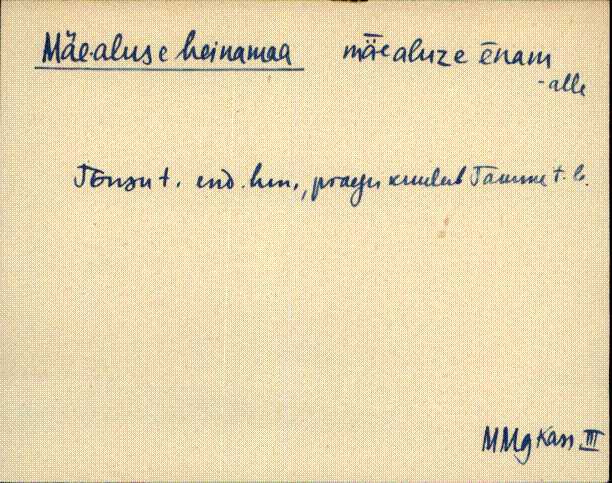 Mäe-aluse heinamaa mäealuze ēnam
-alle
Tõnsu t. end. hm., praegu kuulub Tamme t. k.
MMg Kass III